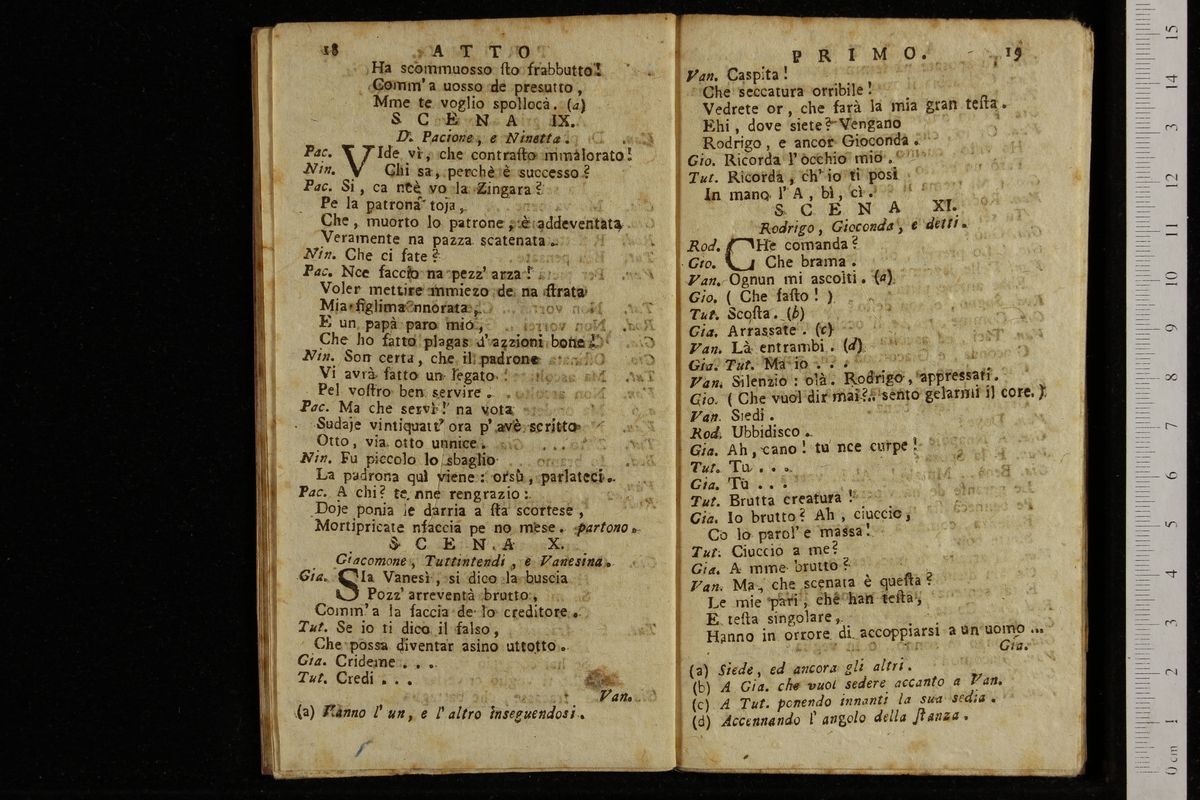 18 ATTO
Ha scommuosso ſto frabbutto!
Comm' a uosso de presutto,
Mme te voglio spollocà. (a)
SCENA IX.
D. Pacione, e Ninetta.
Pac. VIde vì, che contraſto mmalorato!
Nin. Chi sa, perchè è successo?
Pac. Si, ca nc'è vo la Zingara?
Pe la patrona toja,
Che, muorto lo patrone, è addeventata
Veramente na pazza scatenata.
Nin. Che ci fate?
Pac. Nce faccio na pezz' arza!
Voler mettire mmiezo de na ſtrata
Mia figlima nnorata,
E un papà paro mio,
Che ho fatto plagas d'azzioni bone!
Nin. Son certa, che il padrone
Vi avrà fatto un legato
Pel voſtro ben servire.
Pac. Ma che servì! na vota
Sudaje vintiquatt' ora p' avè scritto
Otto, via otto unnice.
Nin. Fu piccolo lo sbaglio
La padrona quì viene: orsù, parlateci.
Pac. A chi? te nne rengrazio:
Doje ponia le darria a ſta scortese,
Mortipricate nfaccia pe no mese. partono.
SCENA X.
Giacomone, Tuttintendi, e Vanesina.
Gia. SIa Vanesì, si dico la buscia
Pozz' arreventà brutto,
Comm' a la faccia de lo creditore.
Tut. Se io ti dico il falso,
Che possa diventar asino uttotto.
Gia. Crideme . . .
Tut. Credi . . .
Van.
(a) Vanno l' un, e l' altro inseguendosi.
PRIMO. 19
Van. Caspita!
Che seccatura orribile!
Vedrete or, che farà la mia gran teſta.
Ehi, dove siete? Vengano
Rodrigo, e ancor Gioconda.
Gio. Ricorda l' occhio mio.
Tut. Ricorda, ch' io ti posi
In mano l' A, bì, cì.
SCENA XI.
Rodrigo, Gioconda, e detti.
Rod. CHe comanda?
Gio. Che brama.
Van. Ognun mi ascolti. (a)
Gio. ( Che faſto! )
Tut. Scoſta. (b)
Gia. Arrassate. (c)
Van. Là entrambi. (d)
Gia. Tut. Ma io . . .
Van. Silenzio: olà. Rodrigo, appressati.
Gio. ( Che vuol dir mai?.. sento gelarmi il core. )
Van. Siedi.
Rod. Ubbidisco.
Gia. Ah, cano! tu nce curpe!
Tut. Tu . . .
Gia. Tù . . .
Tut. Brutta creatura!
Gia. Io brutto? Ah, ciuccio,
Co lo parol' e massa!
Tut. Ciuccio a me?
Gia. A mme brutto?
Van. Ma, che scenata è queſta?
Le mie pari, che han teſta,
E teſta singolare,
Hanno in orrore di accoppiarsi a un uomo ...
Gia.
(a) Siede, ed ancora gli altri.
(b) A Gia. che vuol sedere accanto a Van.
(c) A Tut. ponendo innanti la sua sedia.
(d) Accennando l' angolo della ſtanza.
0 cm 1 2 3 4 5 6 7 8 9 10 11 12 13 14 15